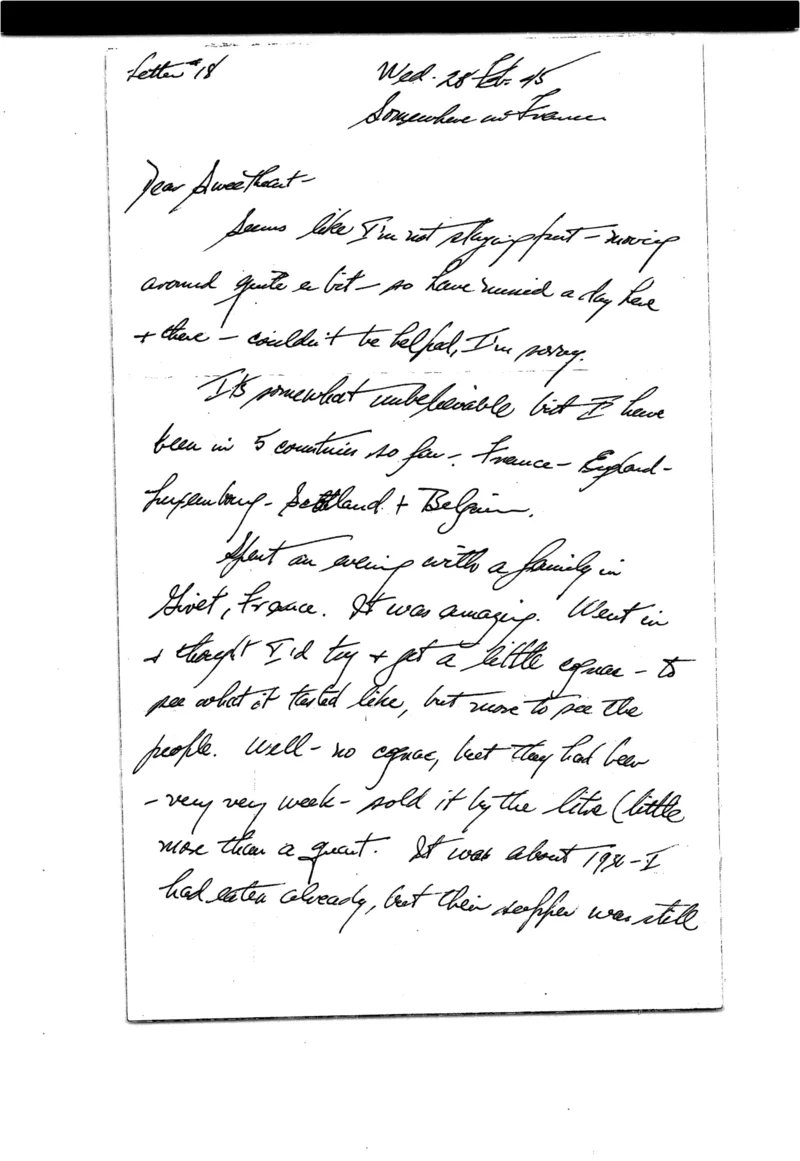 Letter #18
Wed. 28 Feb. 45
Somewhere in France
Dear Sweetheart -
Seems like I'm not staying put - moving
around quite a bit - so have missed a day here
+ there - couldn't be helped, I'm sorry.
It's somewhat unbelievable but I have
been in 5 countries so far - France - England -
Luxembourg - Scotland + Belgium.
Spent an evening with a family in
Givet, France. It was amazing. Went in
+ thought I'd try + get a little cognac - to
see what it tasted like, but more to see the
people. Well - no cognac, but they had beer
- very very weak - sold it by the litre (little
more than a quart. It was about 1930 - I
had eaten already, but their supper was still